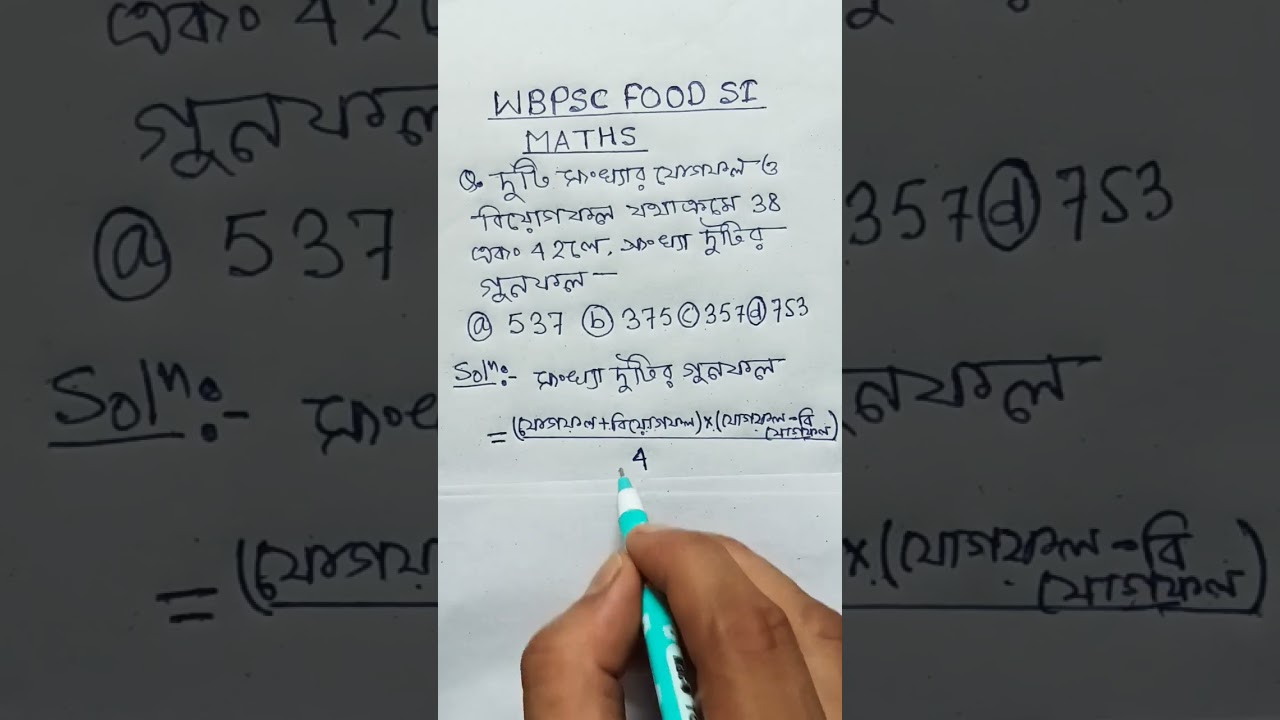 WBPSC FOOD SI
MATHS
Q. দুটি সংখ্যার যোগফল ও
বিয়োগফল যথাক্রমে 38
এবং 42 হলে, সংখ্যা দুটির
গুনফল —
ⓐ 537 ⓑ 375 ⓒ 357 ⓓ 753
Solⁿ:- সংখ্যা দুটির গুনফল
= (যোগফল + বিয়োগফল) × (যোগফল - বি
যোগফল)
4